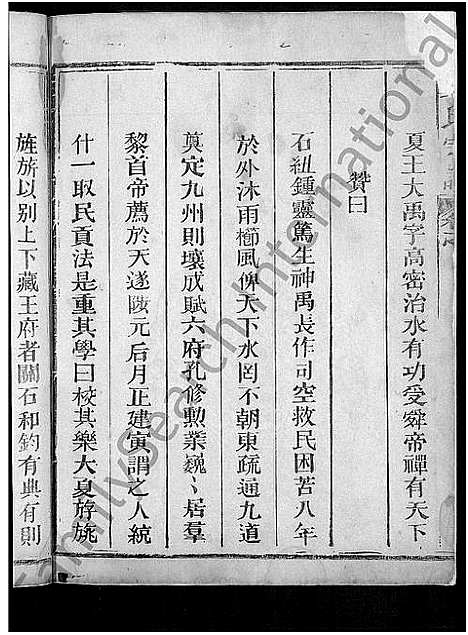 夏王大禹字高密治水有功受舜帝禪有天下
贊曰
石紐鍾靈篤生神禹長作司空救民困苦八年
於外沐雨櫛風俾天下水罔不朝東疏通九道
奠定九州則壤成賦六府孔修勲業巍〻居羣
黎首帝薦於天遂陟元后月正建寅謂之人統
什一取民貢法是重其學曰校其樂大夏斿旐
旌旂以别上下藏王府者關石和鈞有典有則
FamilySearch International